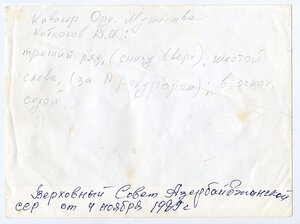 Кавалер Орд. Мужества
В.И.:
третий ряд, (снизу вверх), шестой
слева, (за прокурором); в очках,
седой
Верховный Совет Азербайджанской
сср от 4 ноября 1989 г